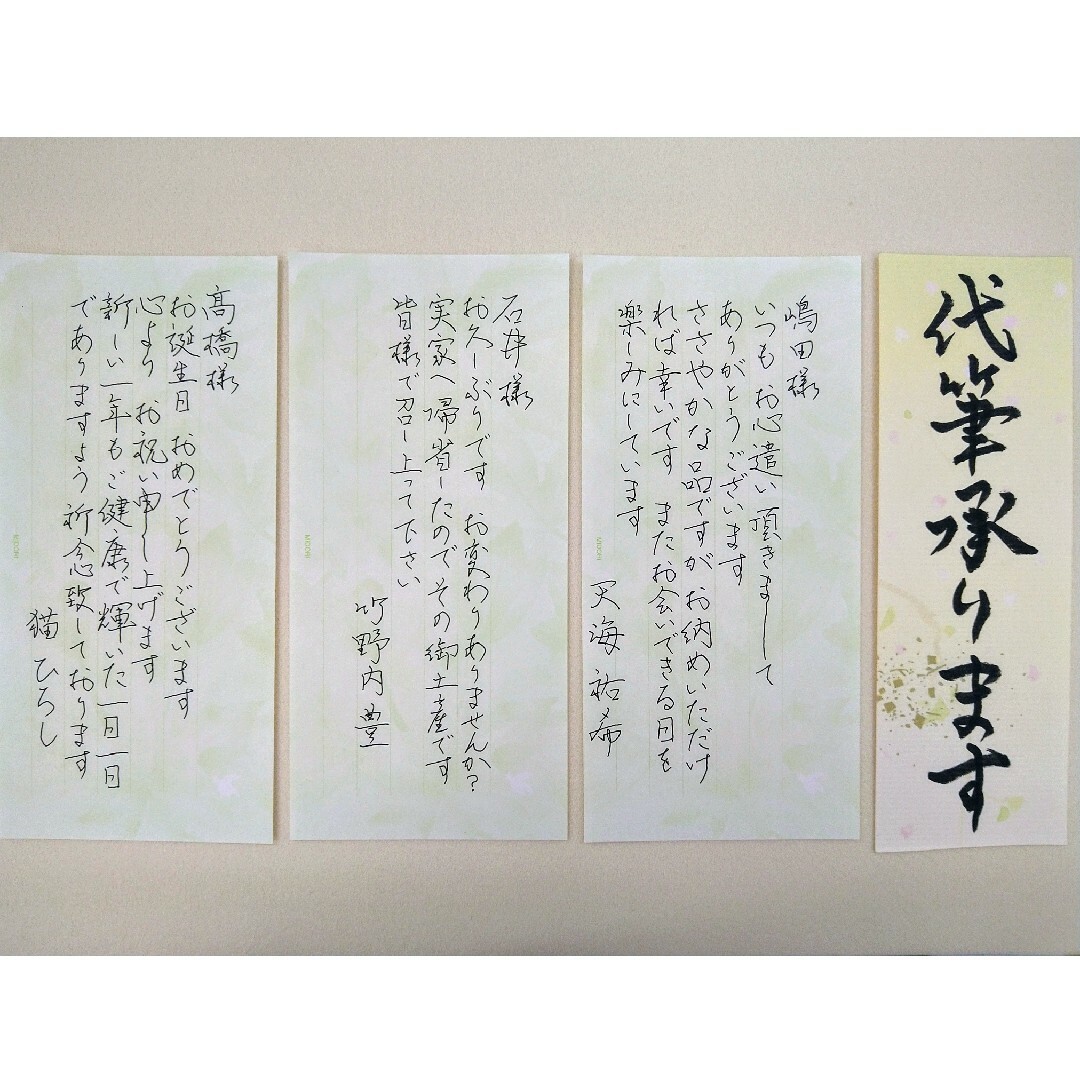 代筆承ります
嶋田様
いつもお心遣い頂きまして
ありがとうございます
ささやかな品ですが お納めいただけ
れば幸いです またお会いできる日を
楽しみにしています
天海祐希
MIDORI
石井様
お久しぶりです お変わりありませんか?
実家へ帰省したのでその御土産です
皆様で召し上って下さい
竹野内豊
MIDORI
髙橋様
お誕生日 おめでとうございます
心より お祝い申し上げます
新しい一年もご健康で輝いた一日一日
でありますよう祈念致しております
猫ひろし
MIDORI